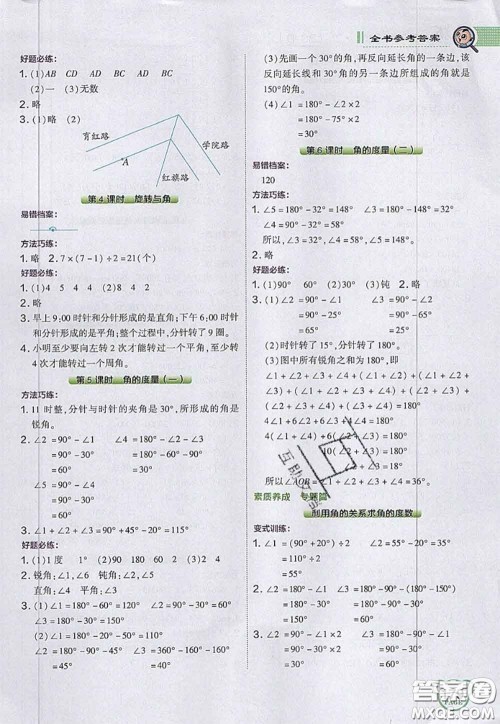 全书参考答案
好题必练：
1. (1)AB CD AD BD
(2)一 (3)无数
2. 略
3. (1)略 (2)
育红路
学院路
A
红旗路
第 4 课时 旋转与角
易错档案：
方法巧练：
1. 略 2. 7×(7－1)÷2＝21(个)
好题必练：
1. (1)4 5 4 4 (2)1 2 4 8
2. 略
3. 早上 9:00 时针和分针形成的是直角；下午 6:00 时针
和分针形成的是平角；这期间，分针转了 9 圈。
4. 小明至少要向左转 2 次才能转过一个平角；至少要
转 4 次才能转过一个周角。
第 5 课时 角的度量（一）
方法巧练：
1. 11 时整，分针与时针的夹角是 30°，所形成的角是
锐角。
2. ∠2＝90°－∠1 ∠4＝90°－∠3
＝90°－30° ＝90°－60°
＝60° ＝30°
3. ∠1＋∠2＋∠3＝90°＋45°＋45°＝180°
好题必练：
1. (1)1度 1° (2)90 180 0 90 90 180
2. 锐角：∠1，∠2 钝角：∠5，∠6
直角：∠4 平角：∠3
3. (1)∠1＝180°－60°＝120° ∠2＝90°－30°＝60°
(2)∠1＝180°－90°－45° ∠2＝180°－120°
＝45° ＝60°
(3)先画一个 30°的角，再反向延长角的一条边，该
反向延长线与 30°角的另一条边所组成的角就是
150°的角。
(4)∠1＝180°－∠2×2
＝180°－75°×2
＝30°
第 6 课时 角的度量（二）
易错档案：
120
方法巧练：
1. ∠5＝180°－32°＝148° ∠3＝180°－148°＝32°
∠4＝180°－32°＝148°
所以，∠3＝32°，∠4＝148°，∠5＝148°。
好题必练：
1. (1)90° 60° (2)30 (3)钝 (4)略
2. 略
3. (1)∠2＝180°－∠1 ∠3＝180°－∠2
＝180°－60° ＝180°－120°
＝120° ＝60°
(2)时针转了 15°，分针转了 180°。
(3)图中所有锐角之和为 180°，即
∠1＋∠2＋∠3＋∠4＋(∠1＋∠2)＋(∠2＋∠3)
＋(∠3＋∠4)＋(∠1＋∠2＋∠3)＋(∠2＋∠3＋
∠4)＋(∠1＋∠2＋∠3＋∠4)＝180°
4∠1＋6∠2＋6∠3＋4∠4＝180°
素质养成 专题篇
利用角的关系求角的度数
变式训练：
1. ∠2＝(90°＋20°)÷2
＝110°÷2
＝55°
∠1＝90°－55°＝35°
2. ∠2＝90°－∠1 ∠3＝90°－∠2
＝90°－30° ＝90°－60°
＝60° ＝30°
答案圈